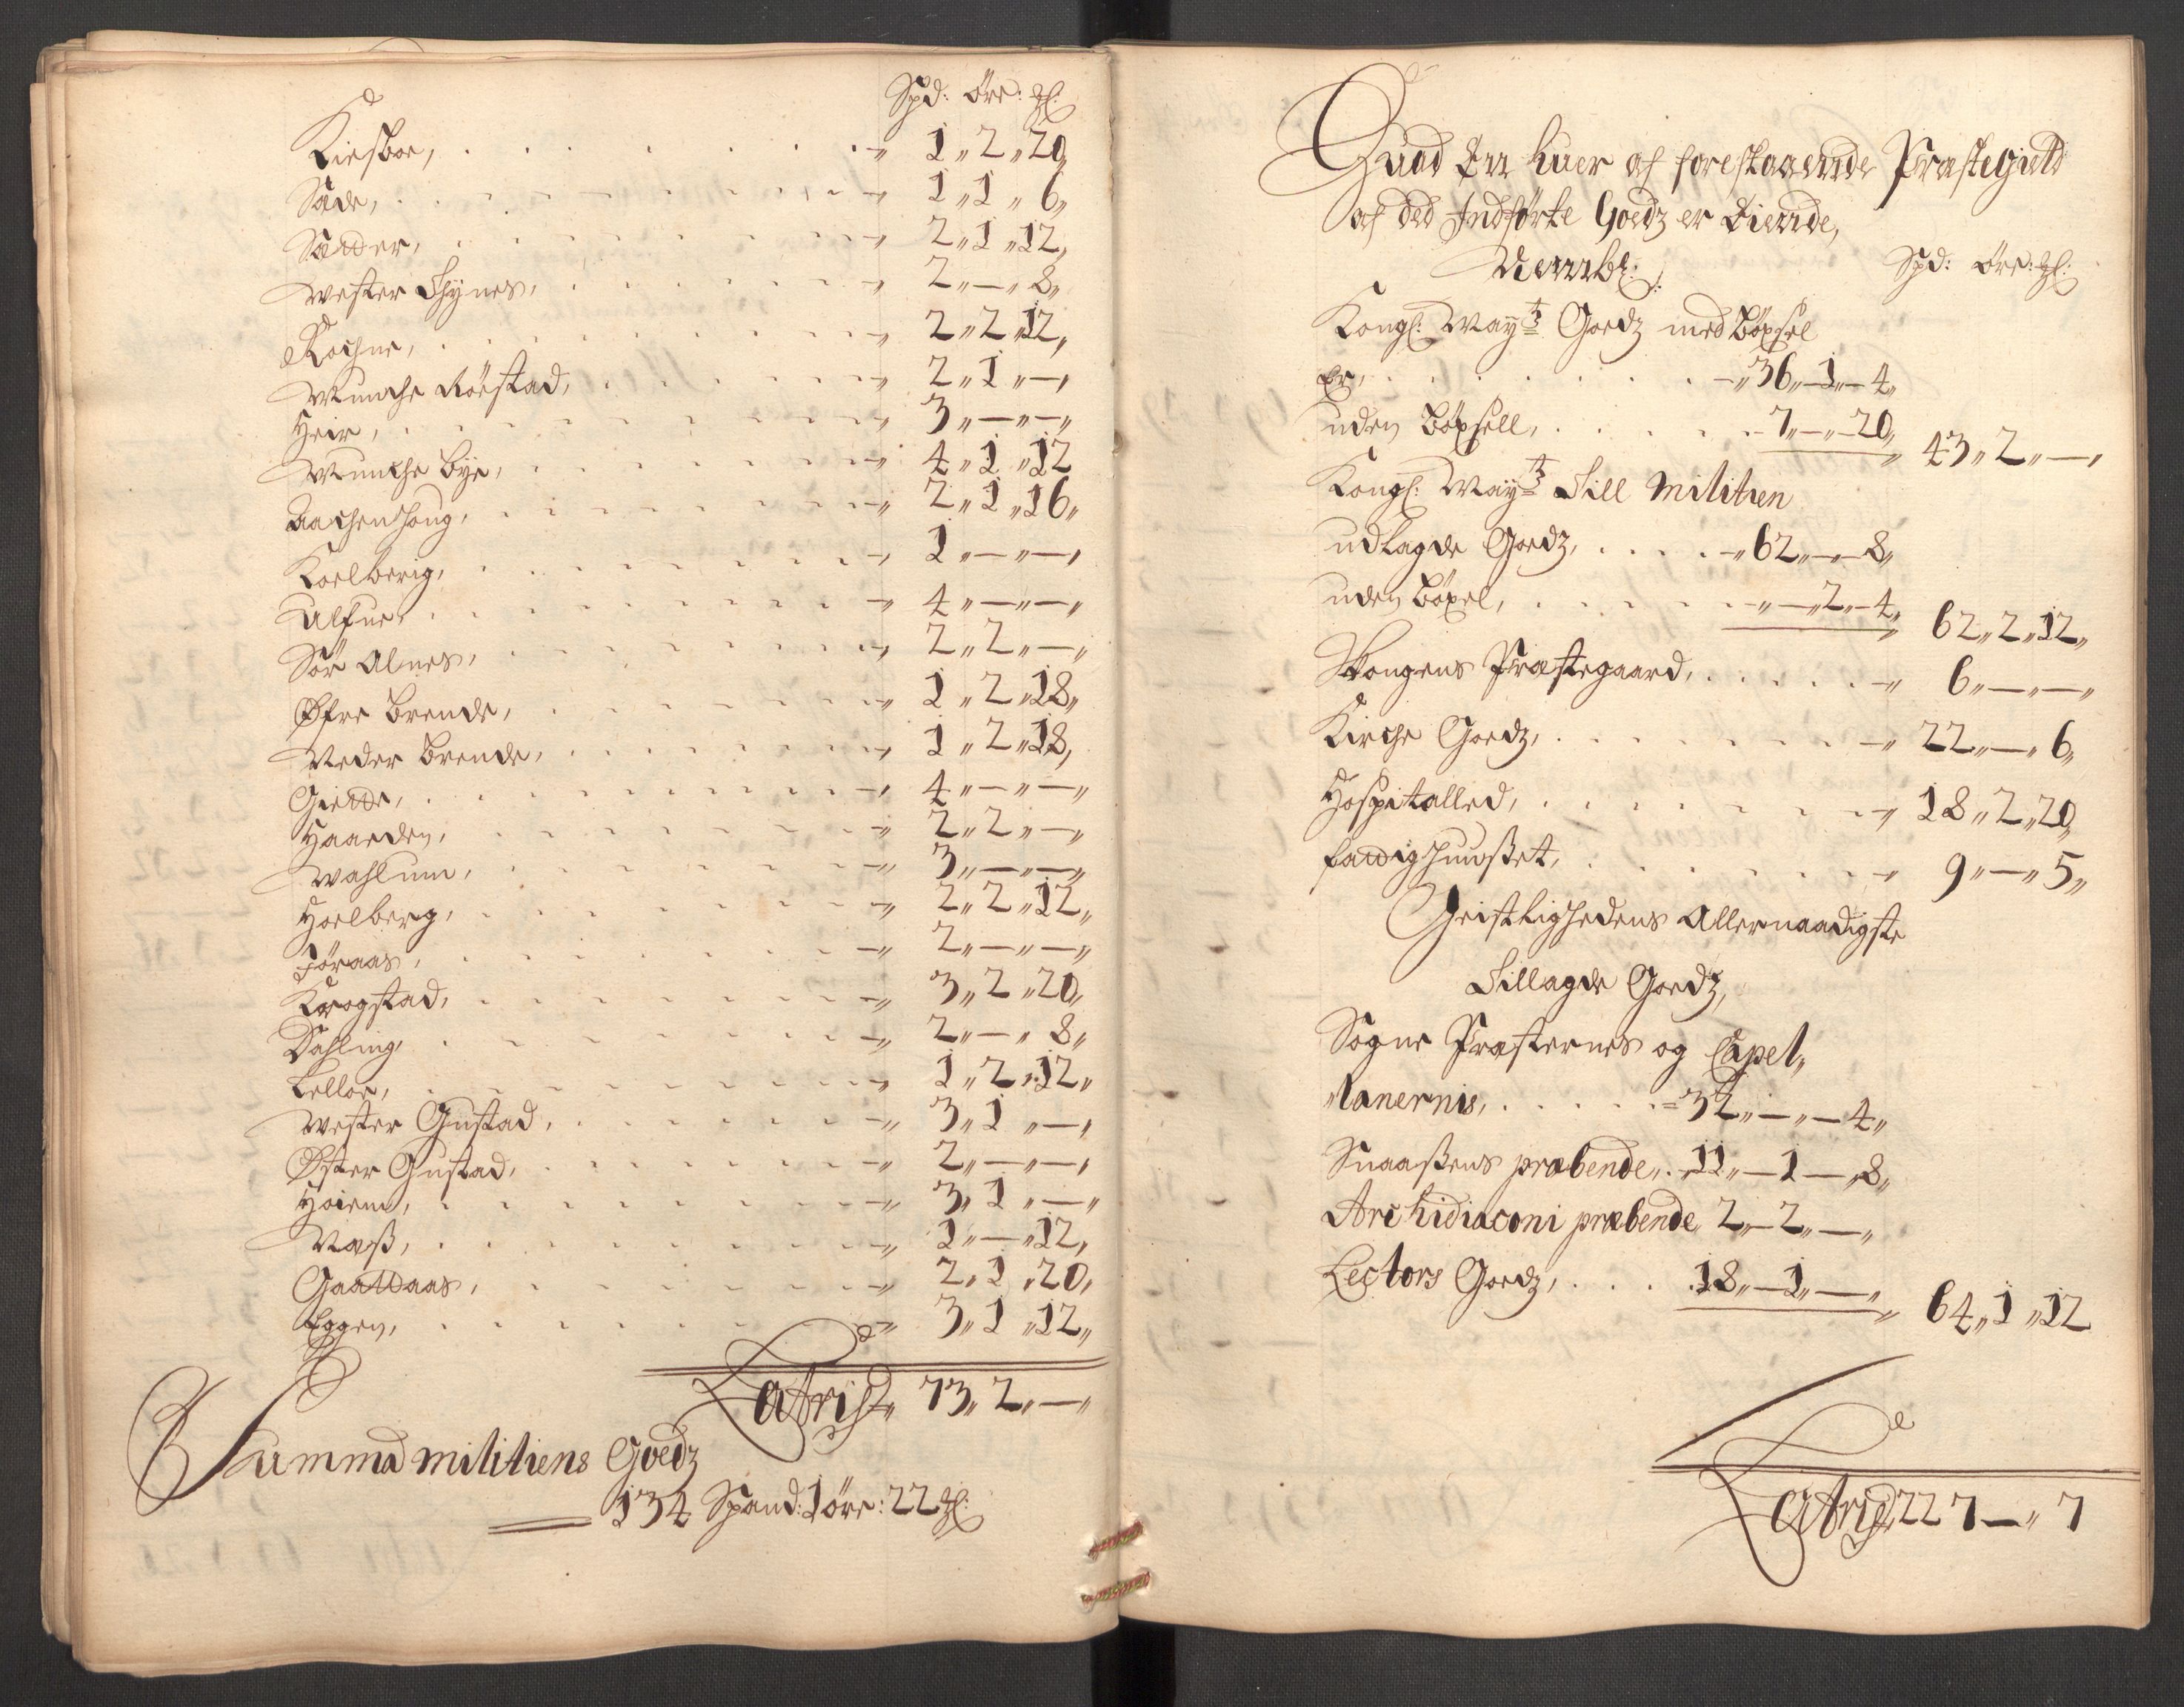 Spd: öre: gl:
Kirsboe, 1 „ 2 „ 20
Sade, 1 „ 1 „ 6
Sætter, 2 „ 1 „ 12
Wester Thynes, 2 „ — „ 8
Rochne, 2 „ 2 „ 12
Munche Röestad, 2 „ 1 „ —
Heir, 3 „ — „ —
Munche bye, 4 „ 1 „ 12
Aachenhoug, 2 „ 1 „ 16
Koelberig, 1 „ — „ —
Alfne 4 „ — „ —
Sör Alnes, 2 „ 2 „ —
Øfre Brende, 1 „ 2 „ 18
Neder Brende, 1 „ 2 „ 18
Giette, 4 „ — „ —
Haarden, 2 „ 2 „ —
Wahlum, 3 „ — „ —
Hoelberg, 2 „ 2 „ 12
Föraas, 2 „ — „ —
Krogstad, 3 „ 2 „ 20
Dahling, 2 „ — „ 8
Lelloe, 1 „ 2 „ 12
Wester Gustad, 3 „ 1 „ —
Øster Gustad, 2 „ — „ —
Hoiem, 3 „ 1 „ —
Næss, 1 „ — „ 12
Gaattaas, 2 „ 1 „ 20
Eggen, 3 „ 1 „ 12
Lateris 73 „ 2 „ —
Summa militiens Goedz
134 Spand: 1 öre: 22 gl:
Huad En huer af forestaaende Præstegield
af ded Indförte Goedz er Eiende,
Nembl: Spd: öre: gl:
Kongl: Maytz Goedz med Böxsel
Er, 36 „ 1 „ 4
uden Böxsell, 7 „ — „ 20 43 „ 2 „ —
Kongl: Maytz Till Militien
udlagde Goedz, 62 „ — „ 8
uden Böxel, — „ 2 „ 4 62 „ 2 „ 12
Skongens Præstegaard, 6 „ — „ —
Kirche Goedz, 22 „ — „ 6
Hospitalled, 18 „ 2 „ 20
fattighuusset, 9 „ — „ 5
Geistlighedens Allernaadigste
Tillagde Goedz,
Sogne Præsternes og Capel„
„lanernis, 32 „ — „ 4
Snaassens præbende, 11 „ 1 „ 8
Archidiaconi præbende 2 „ 2 „ —
Lectors Goedz, 18 „ 1 „ — 64 „ 1 „ 12
Lateris 227 — „ 7